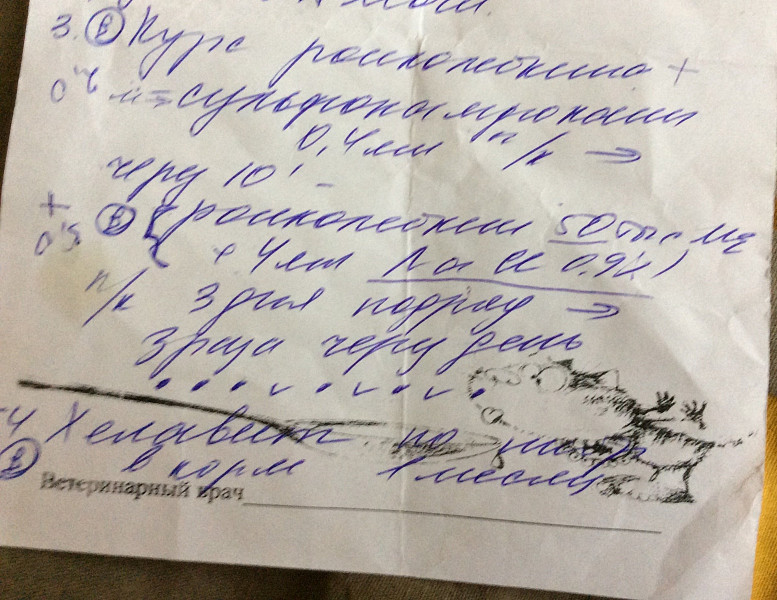 3. В Курс ронколейкина +
0,4 мл сульфокамфокаин
0,4 мл п/к →
через 10' –
+ В (ронколейкин 50 тыс МЕ
0,5 + 4 мл NaCl 0.9%)
п/к 3 дня подряд →
3 раза через день
4 Хелавит по
В в корм 1 месяц
Ветеринарный врач